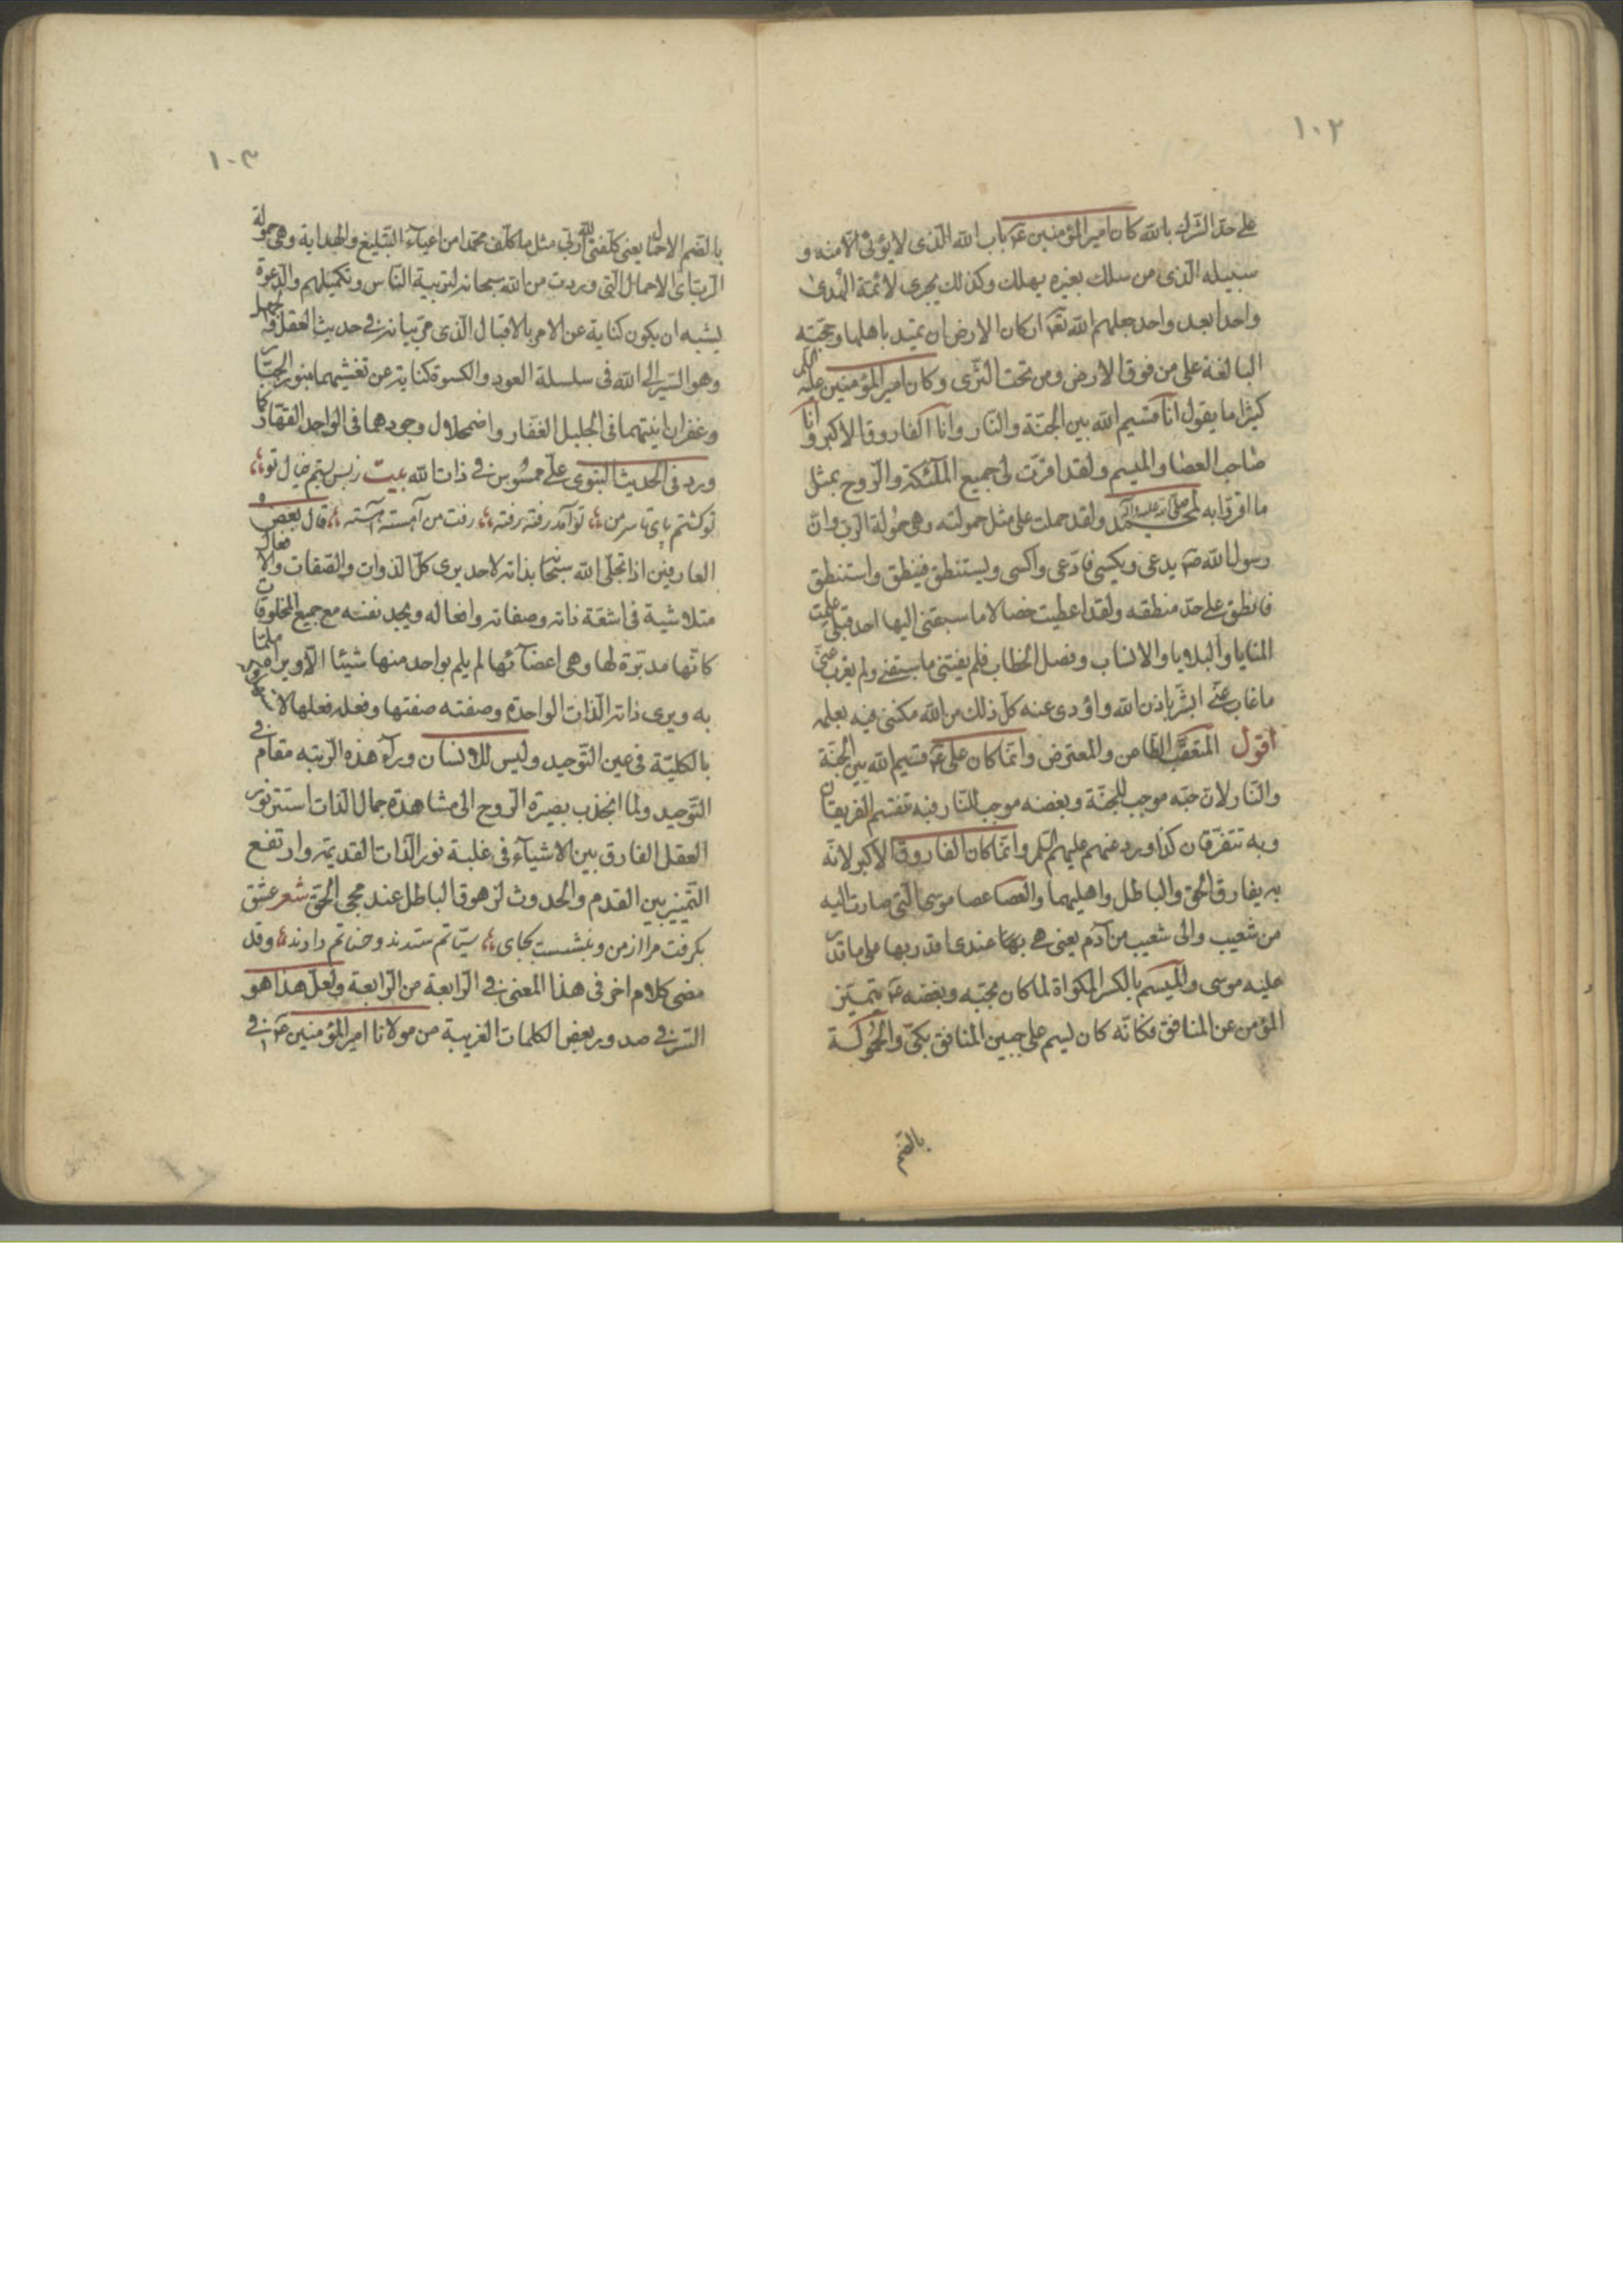 ١٠٢
على حد الشرك بالله كان امير المؤمنين ع باب الله الذى لا يؤتى الا منه و
سبيله الذى من سلك بغيره يهلك وكذلك يجرى لائمة الهدى
واحدا بعد واحد جعلهم الله تعـ اركان الارض ان تميد باهلها وحجته
البالغة على من فوق الارض ومن تحت الثرى وكان امير المؤمنين عليه السلم
كثيرا ما يقول انا قسيم الله بين الجنة والنار وانا الفاروق الاكبر وانا
صاحب العصا والميسم ولقد اقرت لى جميع الملئكة والروح بمثل
ما اقروا به لمحمد صلى الله عليه وآله ولقد حملت على مثل حمولته وهى حمولة الرب وان
رسول الله ص يدعى ويكسى فادعى واكسى ويستنطق فينطق واستنطق
فانطق على حد منطقه ولقد اعطيت خصالا ما سبقنى اليها احد قبلى علمت
المنايا والبلايا والانساب وفصل الخطاب فلم يفتنى ما سبقنى ولم يعزب عنى
ما غاب عنى ابشر باذن الله واؤدى عنه كل ذلك من الله مكننى فيه بعلمه
اقول المتعقب الطاعن والمعترض وانما كان على ع قسيم الله بين الجنة
والنار لان حبه موجب للجنة وبغضه موجب للنار فبه تقسم الفريقان
وبه تتفرقان كذا ورد عنهم عليهم السلم وانما كان الفاروق الاكبر لانه
به يفارق الحق والباطل واهليهما والعصا عصا موسى التى صارت اليه
من شعيب والى شعيب من آدم يعنى هى بها عندى اقدر بها على ما قدر
عليه موسى والميسم بالكسر المكواة لما كان بحبه وبغضه ع يتميز
المؤمن عن المنافق فكانه كان ليسم على جبين المنافق بكى والحمولة
بالضم
١٠٣
بالضم الاحمال يعنى كلفنى الله ربى مثل ما كلف محمدا من اعباء التبليغ والهداية وهى حمولة
الرب اى الاحمال التى وردت من الله سبحانه لتربية الناس وتكميلهم والدعوة
يشبه ان يكون كناية عن الامر بالاقبال الذى مر بيانه فى حديث العقل والجهل
وهو السير الى الله فى سلسلة العود والكسوة كناية عن تغشيهما بنور الجبار
وغفران انيتهما فى الجليل الغفار واضمحلال وجودهما فى الواحد القهار كما
ورد فى الحديث النبوى على ممسوس فى ذات الله بيت زبس بستم خيال تو
تو كشتم پاى تا سر من تو آمد رفته رفته رفت من آهسته آهسته قال بعض
العارفين اذا تجلى الله سبحانه بذاته لاحد يرى كل الذوات والصفات والافعال
متلاشية فى اشعة ذاته وصفاته وافعاله ويجد نفسه مع جميع المخلوقات
كانها مدبرة لها وهى اعضائها لم يلم بواحد منها شيئا الا ويراه ملما
به ويرى ذاته الذات الواحدة وصفته صفتها وفعله فعلها
بالكلية فى عين التوحيد وليس للانسان وراء هذه الرتبه مقام فى
التوحيد ولما انجذب بصيرة الروح الى مشاهدة جمال الذات استتر نور
العقل الفارق بين الاشياء فى غلبة نور الذات القديمة وارتفع
التمييز بين القدم والحدوث لزهوق الباطل عند مجى الحق شعر عشق
بكرفت مرا از من وبنشست بجاى سيئاتم ستدند وحسناتم دادند وقد
مضى كلام اخر فى هذا المعنى فى الرابعة من الرابعة ولعل هذا هو
السر فى صدور بعض الكلمات الغريبة من مولانا امير المؤمنين ع فى